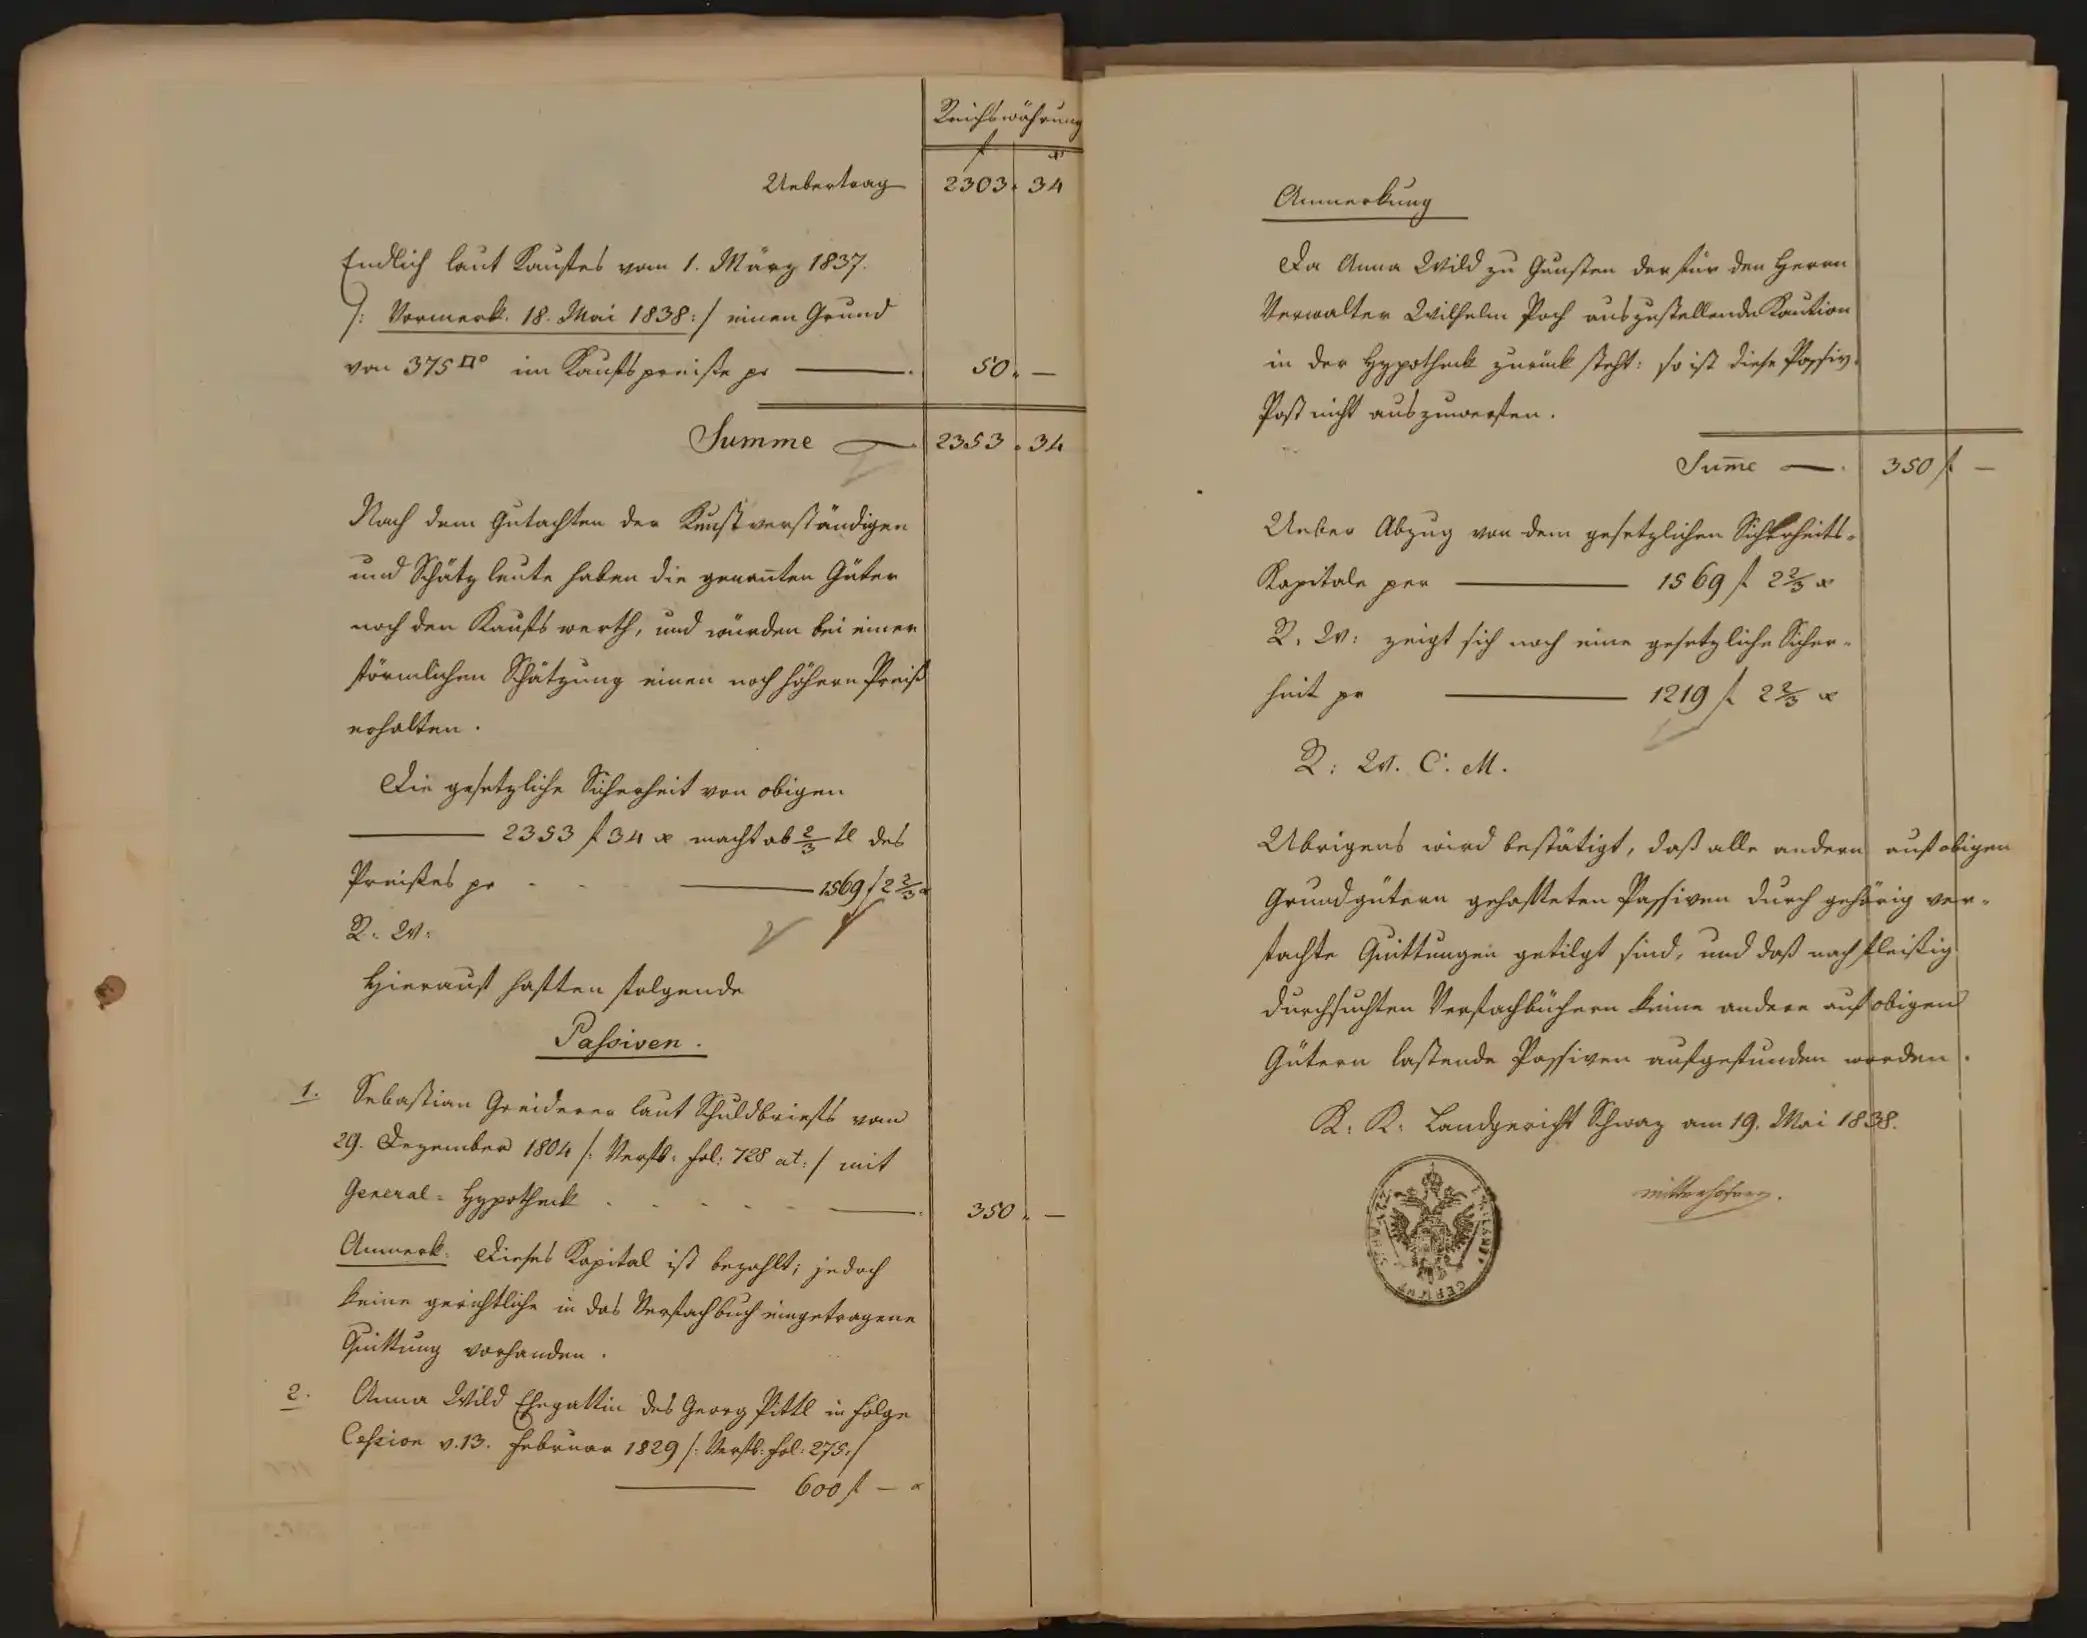 Reichswährung
f xr
Uebertrag 2303. 34
Endlich laut Kaufes vom 1. März 1837.
/: Vormerk. 18. Mai 1838:/ einen Grund
von 375 □° im Kaufspreiße pr — 50. —
Summe — 2353. 34
Nach dem Gutachten der Kunstverständigen
und Schätzleute haben die genañten Güter
noch den Kaufswerth, und würden bei einer
förmlichen Schätzung einen noch höhern Preiß
erhalten.
Die gesetzliche Sicherheit von obigen
— 2353 f 34 x macht ab 2/3 tl des
Preißes pr - - — 1569 f 2 2/3 x
R: W:
Hierauf haften folgende
Passiven.
1. Sebastian Greiderer laut Schuldbriefs vom
29. Dezember 1804 /: Verfb: fol: 728 at:/ mit
General=Hypothek . - - - - — 350. —
Anmerk: Dieses Kapital ist bezahlt; jedoch
keine gerichtliche in das Verfachbuch eingetragene
Quittung vorhanden.
2. Anna Wild Ehegattin des Georg Pittl in Folge
Cession v. 13. Februar 1829 /: Verfb: fol: 275:/
— 600 f — x
Anmerkung
Da Anna Wild zu Gunsten der für den Herrn
Verwalter Wilhelm Poch auszustellende Kaution
in der Hypothek zurück steht: so ist diese Passiv-
Post nicht auszuwerfen.
Sum̄e — 350 f —
Ueber Abzug von dem gesetzlichen Sicherheits-
Kapitale per — 1569 f 2 2/3 x
R: W: zeigt sich noch eine gesetzliche Sicher-
heit pr — 1219 f 2 2/3 x
R: W. C. M.
Ubrigens wird bestätigt, daß alle andern auf obigen
Grundgütern gehafteten Passiven durch gehörig ver-
fachte Quittungen getilgt sind, und daß nach fleißig
durchsuchten Verfachbüchern keine andere auf obigen
Gütern lastende Passiven aufgefunden worden.
K: K: Landgericht Schwaz am 19. Mai 1838.
Mitterhofer.